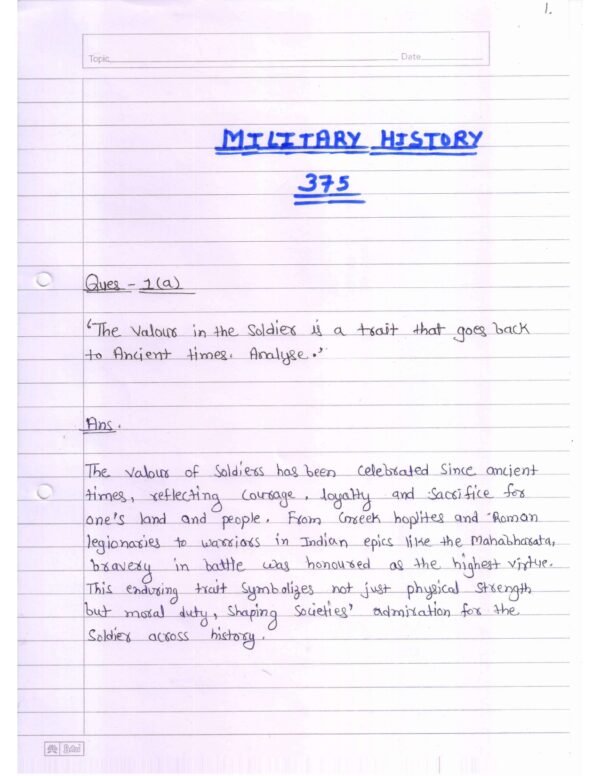 1.
Topic Date
MILITARY HISTORY
375
Ques - 1(a)
'The Valour in the Soldier is a trait that goes back
to Ancient times. Analyse.'
Ans.
The valour of Soldiers has been celebrated since ancient
times, reflecting courage, loyalty and sacrifice for
one's land and people. From Greek hoplites and Roman
legionaries to warriors in Indian epics like the Mahabharata,
bravery in battle was honoured as the highest virtue.
This enduring trait symbolizes not just physical strength
but moral duty, shaping societies' admiration for the
Soldier across history.